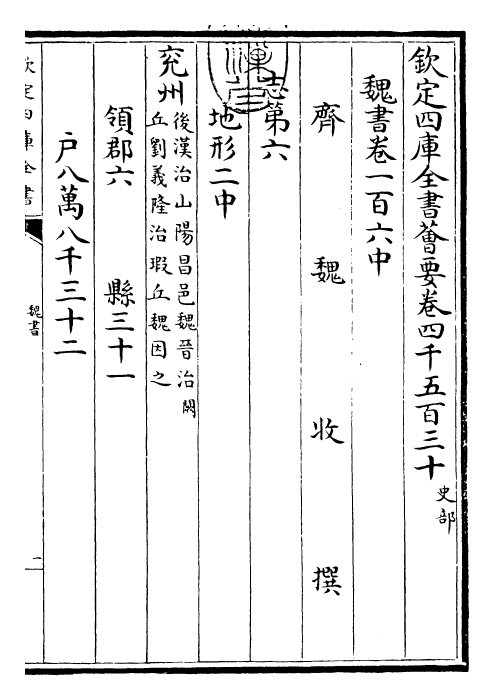 欽定四庫全書薈要卷四千五百三十 史部
魏書卷一百六中
齊 魏 收 撰
志第六
地形二中
兖州 後漢治山陽昌邑魏晉治闕
丘劉義隆治瑕丘魏因之
領郡六 縣三十一
戸八萬八千三十二
欽定四庫全書
魏書
一